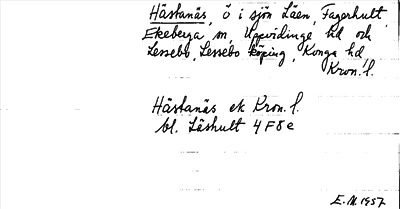 Hästanäs, ö i sjön Läen, Fagerhult,
Ekeberga sn, Uppvidinge hd och
Lessebo, Lessebo köping, Konga hd,
Kron. l.
Hästanäs ek Kron. l.
bl. Läshult 4 F 5 e
E.N. 1957